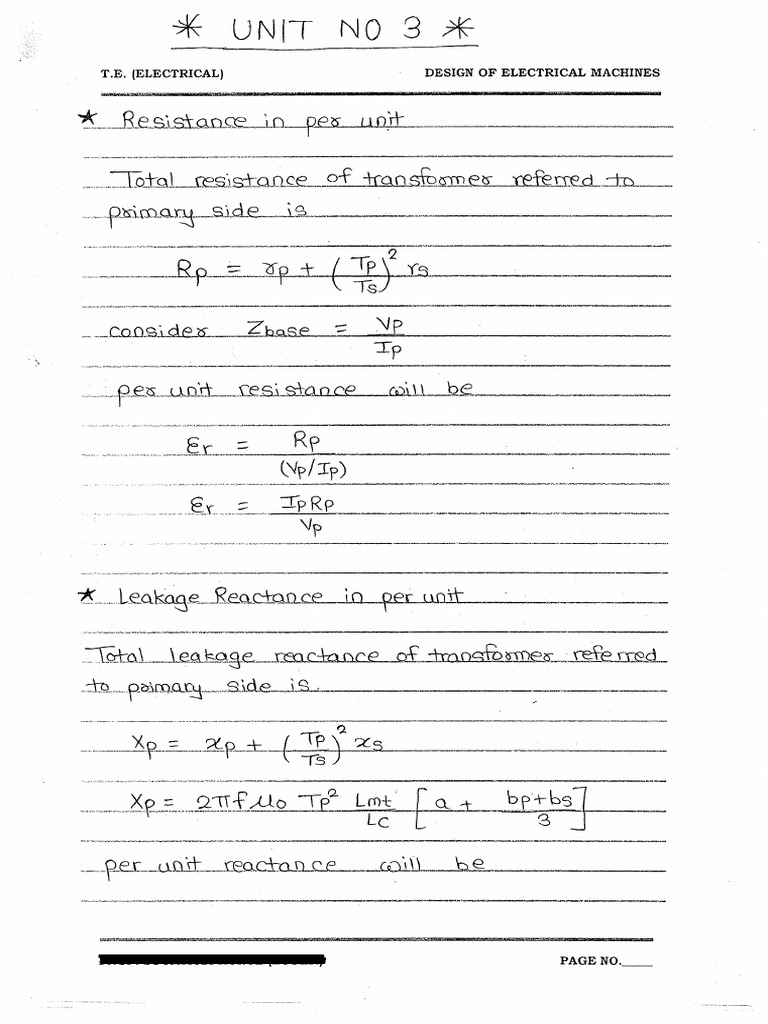 * UNIT NO 3 *
T.E. (ELECTRICAL) DESIGN OF ELECTRICAL MACHINES
* Resistance in per unit
Total resistance of transformer referred to
primary side is
Rp = rp + (Tp/Ts)² rs
consider Zbase = Vp/Ip
per unit resistance will be
Ɛr = Rp/(Vp/Ip)
Ɛr = IpRp/Vp
* Leakage Reactance in per unit
Total leakage reactance of transformer referred
to primary side is.
Xp = xp + (Tp/Ts)² xs
Xp = 2πfμo Tp² Lmt/Lc [a + bp+bs/3]
per unit reactance will be
PAGE NO.____